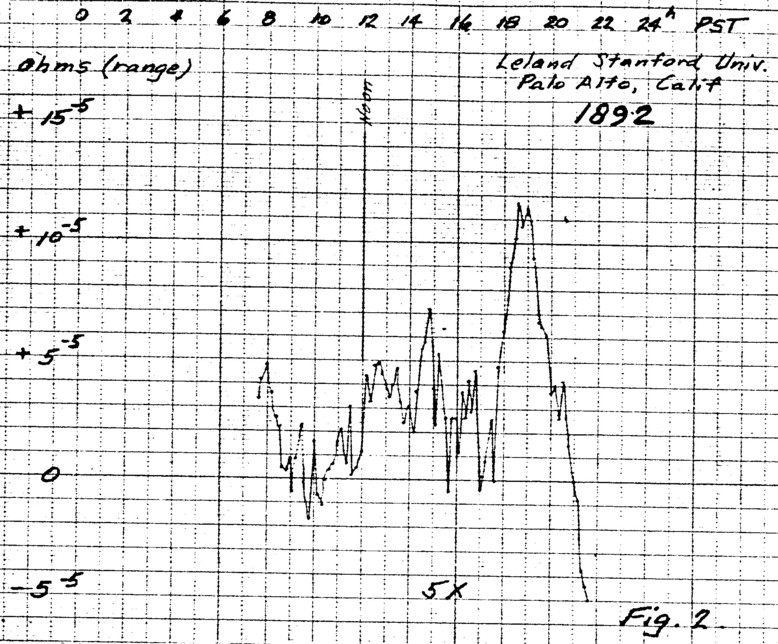 0 2 4 6 8 10 12 14 16 18 20 22 24ʰ PST
ohms (range)
Leland Stanford Univ.
Palo Alto, Calif
1892
+ 15⁻⁵
Noon
+ 10⁻⁵
+ 5⁻⁵
0
-5⁻⁵
5X
Fig. 2